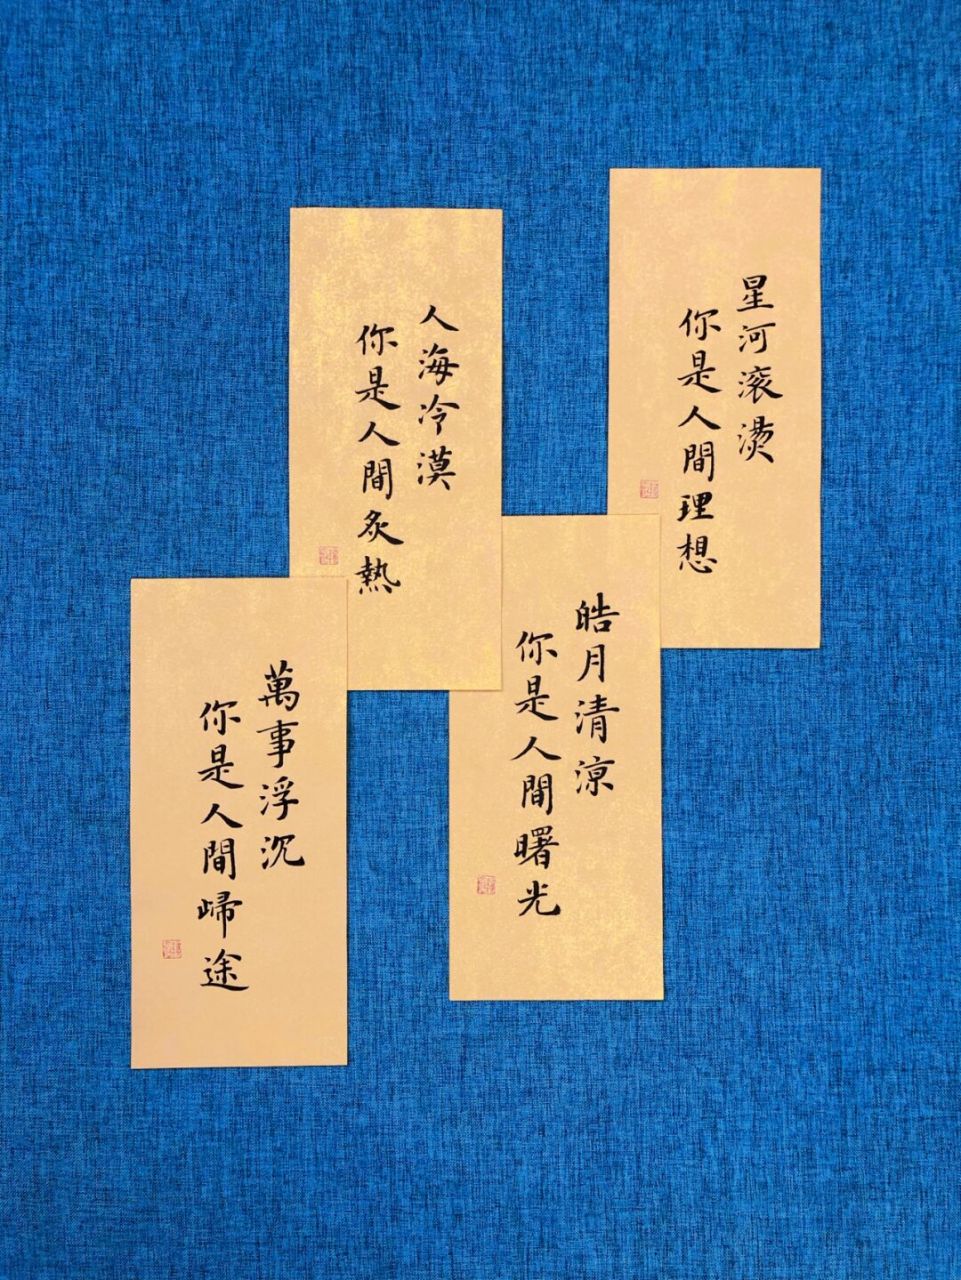 星河滚燙
你是人間理想
人海冷漠
你是人間炙熱
皓月清涼
你是人間曙光
萬事浮沉
你是人間歸途